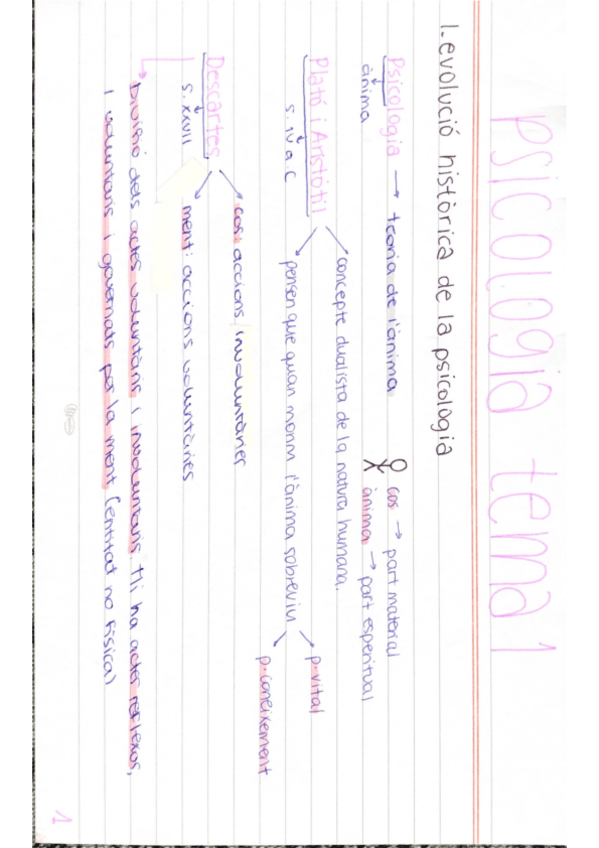 psicologia tema 1
1. evolució històrica de la psicologia
Psicologia → teoria de l'ànima
ànima
cos → part material
ànima → part esperitual
Plató i Aristòtil
s. IV a.C
concepte dualista de la natura humana.
pensen que quan morim l'ànima sobreviu
p. vital
p. coneixement
Descartes
s. XVII
cos: accions involuntàries
ment: accions voluntàries
Divisió dels actes voluntàris i involuntaris. Hi ha actes reflexos,
i voluntaris i governats per la ment (entitat no física)
1